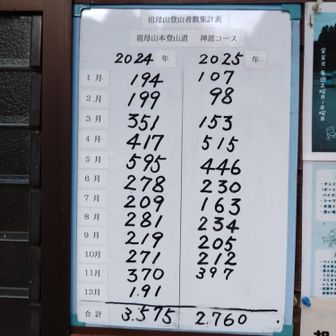 祖母山登山者数集計表
祖母山本登山道 神原コース
2024 年 2025 年
1月 194 107
2月 199 98
3月 351 153
4月 417 515
5月 595 446
6月 278 230
7月 209 163
8月 281 234
9月 219 205
10月 271 212
11月 370 397
12月 191
合計 3.575 2.760